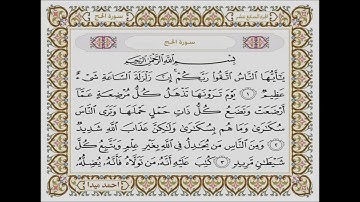 سورة الحج
الجزء السابع عشر
سورة الحج
بِسْمِ اللَّهِ الرَّحْمَٰنِ الرَّحِيمِ
يَا أَيُّهَا النَّاسُ اتَّقُوا رَبَّكُمْ إِنَّ زَلْزَلَةَ السَّاعَةِ شَيْءٌ
عَظِيمٌ ۝١ يَوْمَ تَرَوْنَهَا تَذْهَلُ كُلُّ مُرْضِعَةٍ عَمَّا
أَرْضَعَتْ وَتَضَعُ كُلُّ ذَاتِ حَمْلٍ حَمْلَهَا وَتَرَى النَّاسَ
سُكَارَىٰ وَمَا هُم بِسُكَارَىٰ وَلَٰكِنَّ عَذَابَ اللَّهِ شَدِيدٌ
۝٢ وَمِنَ النَّاسِ مَن يُجَادِلُ فِي اللَّهِ بِغَيْرِ عِلْمٍ وَيَتَّبِعُ كُلَّ
شَيْطَانٍ مَّرِيدٍ ۝٣ كُتِبَ عَلَيْهِ أَنَّهُ مَن تَوَلَّاهُ فَأَنَّهُ يُضِلُّهُ
احمد ميدا